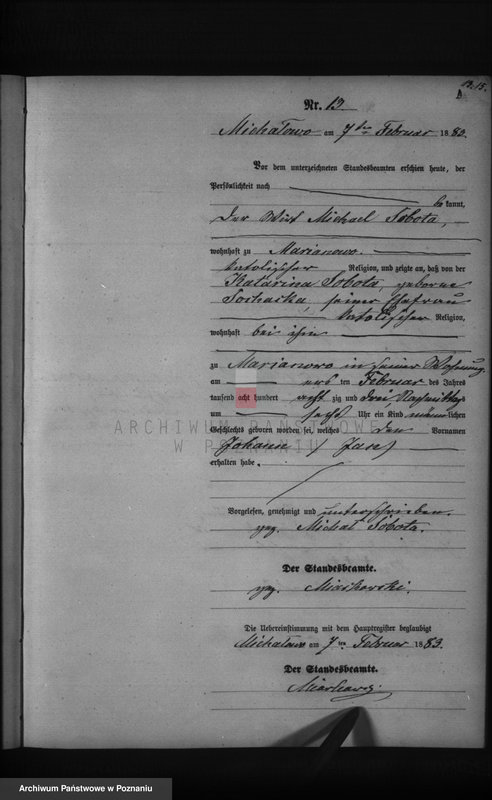 13. 15.
Nr. 13.
Michałowo am 7ten Februar 1883.
Vor dem unterzeichneten Standesbeamten erschien heute, der
Persönlichkeit nach
be kannt,
der Wirt Michael Sobota,
wohnhaft zu Marianowo.
katolischer Religion, und zeigte an, daß von der
Katarina Sobota, geborene
Sochacka, seiner Ehefrau
katolischer Religion,
wohnhaft bei ihm
zu Marianowo in seiner Wohnung
am ersten Februar des Jahres
tausend acht hundert acht zig und drei, Nachmittags
um sechs Uhr ein Kind männlichen
Geschlechts geboren worden sei, welches den Vornamen
Johann (Jan)
erhalten habe.
Vorgelesen, genehmigt und unterschrieben.
gez. Michał Sobota.
Der Standesbeamte.
gez. Miaskowski.
Die Uebereinstimmung mit dem Hauptregister beglaubigt
Michałowo am 7ten Februar 1883.
Der Standesbeamte.
ARCHIWUM PAŃSTWOWE
W POZNANIU
Archiwum Państwowe w Poznaniu